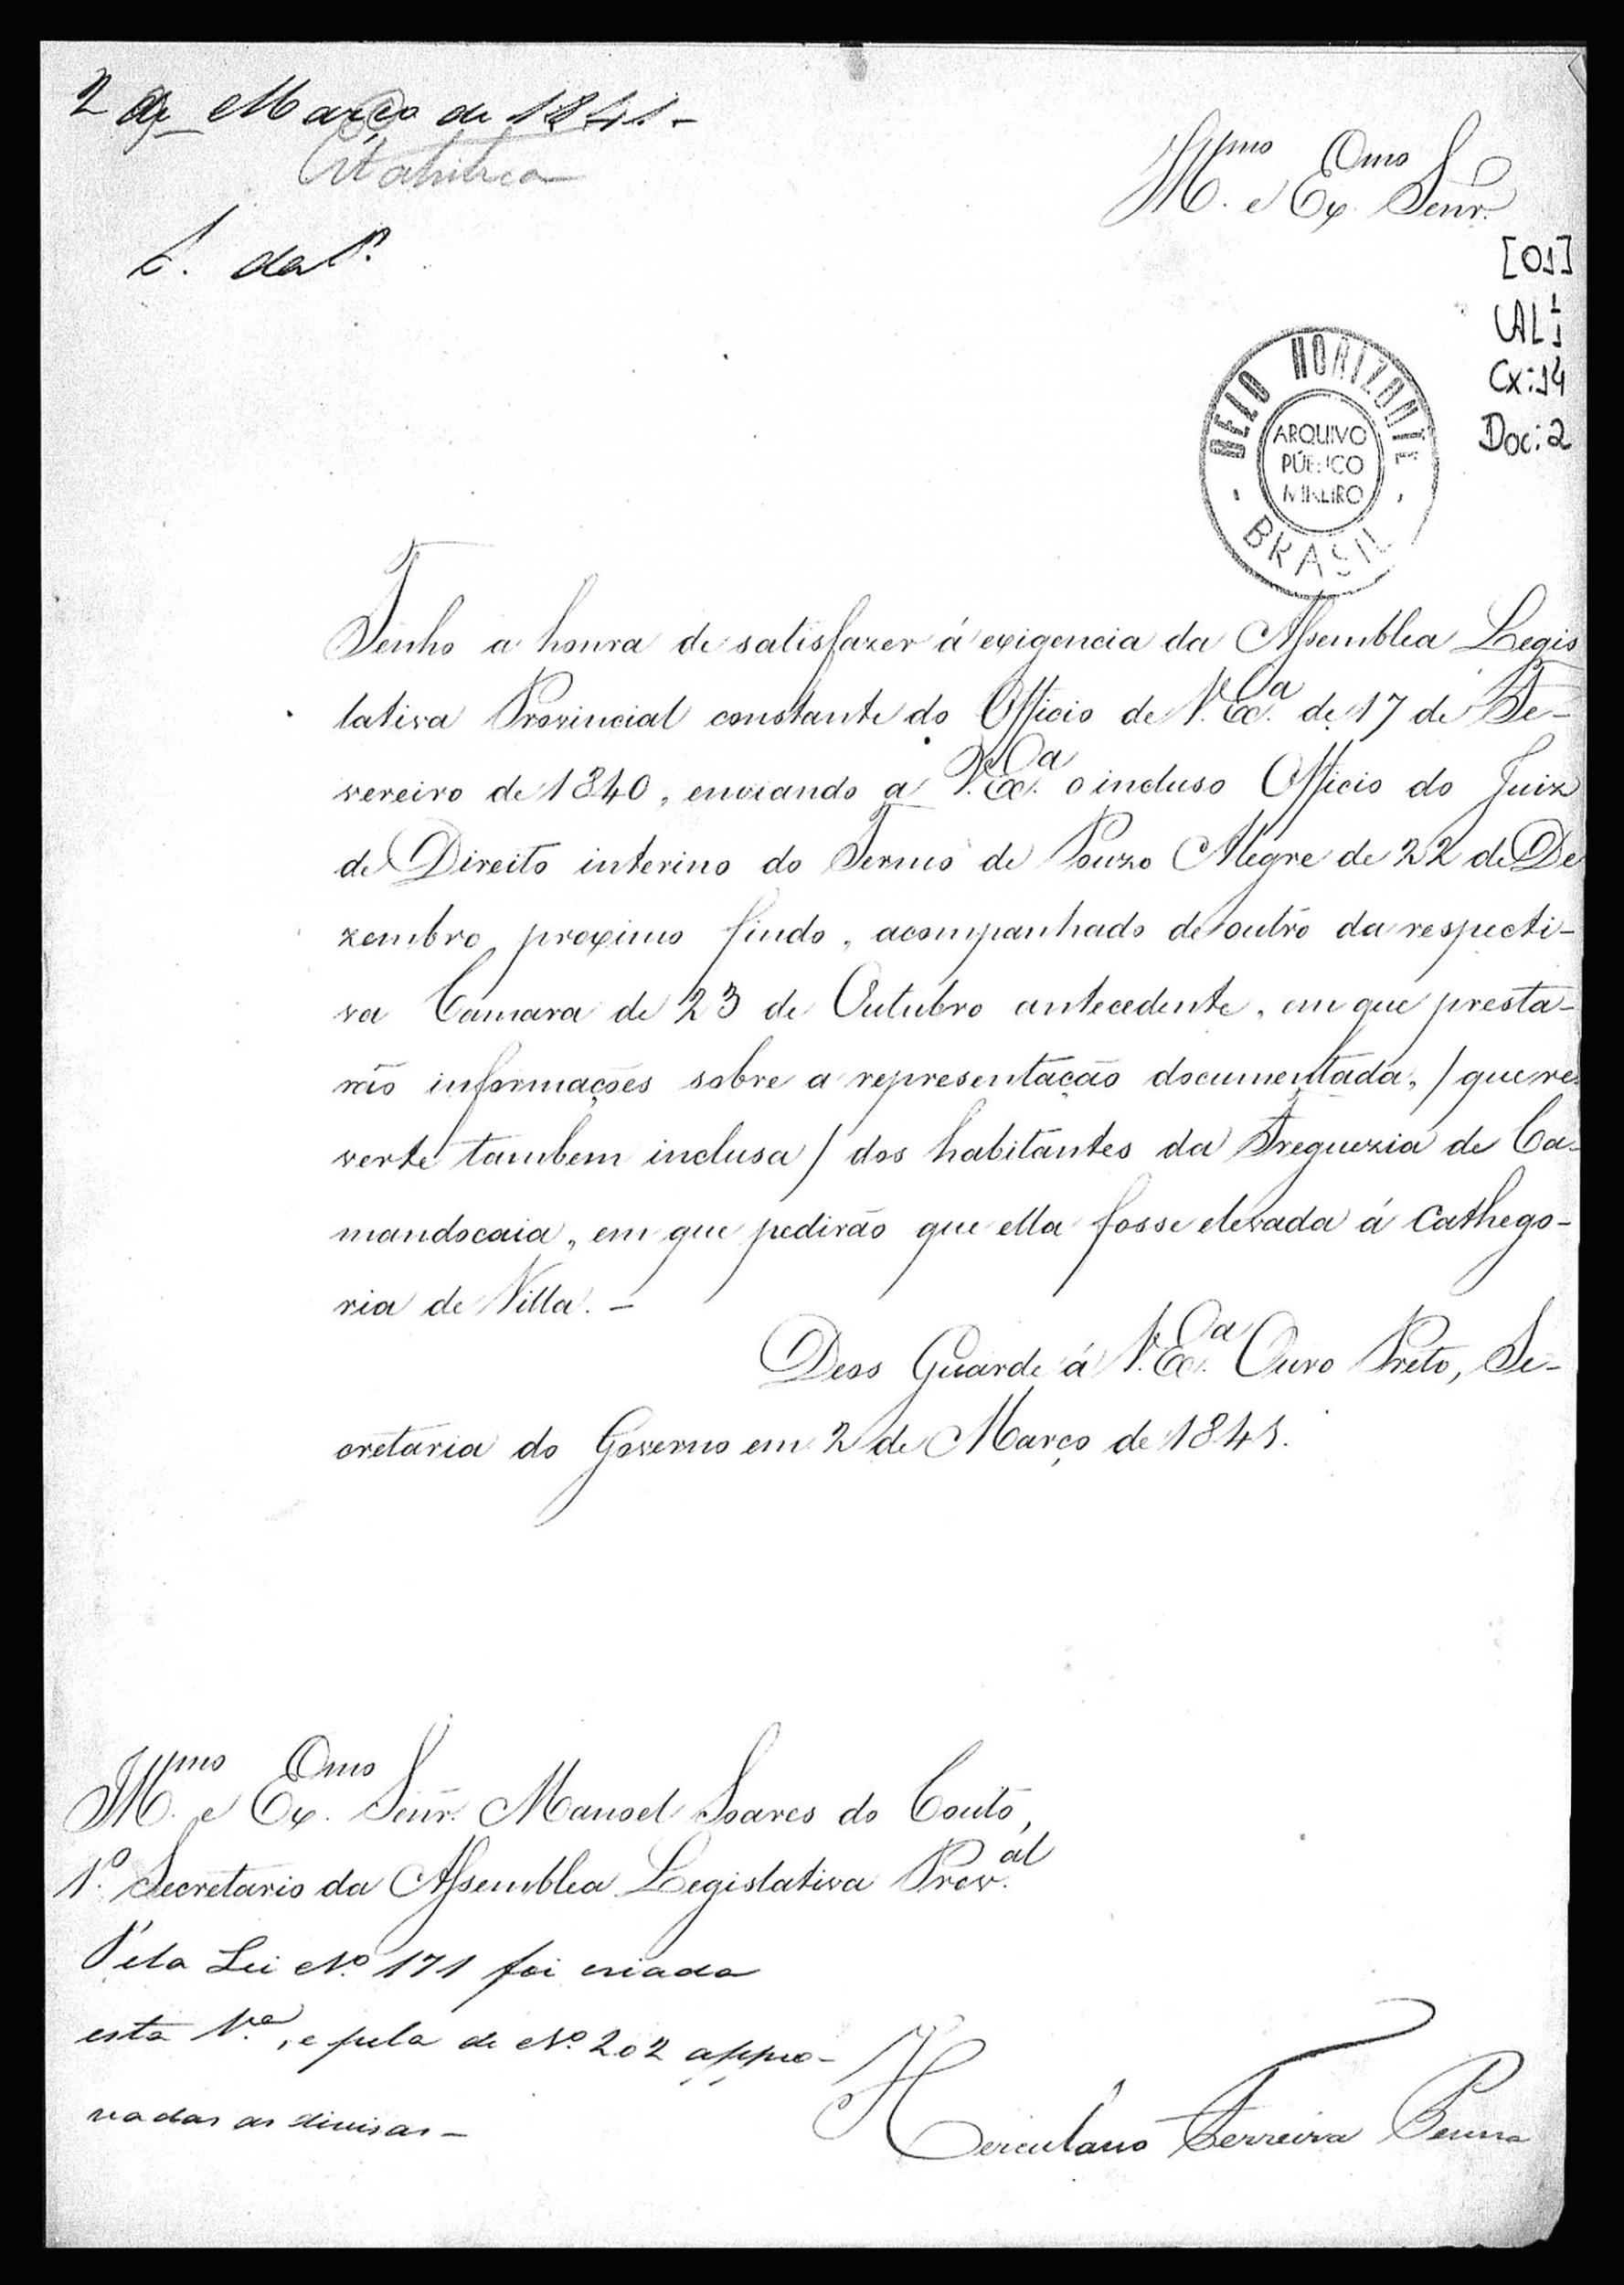 2 de Março de 1841 -
Estatistica
Illmo e Exmo Senr.
[01]
AL 1
Cx: 14
Doc: 2
BELO HORIZONTE
ARQUIVO
PÚBLICO
MINEIRO
BRASIL
Tenho a honra de satisfazer á exigencia da Assemblea Legis
lativa Provincial constante do Officio de V. Exa. de 17 de Fe-
vereiro de 1840, enviando a V. Exa. o incluso Officio do Juiz
de Direito interino do Termo de Pouzo Alegre de 22 de De
zembro proximo findo, acompanhado de outro da respecti-
va Camara de 23 de Outubro antecedente, em que presta-
rão informações sobre a representação documentada, / que re-
verte tambem inclusa / dos habitantes da Freguezia de Ca-
mandocaia, em que pedirão que ella fosse elevada á Cathego-
ria de Villa. -
Deos Guarde á V. Exa. Ouro Preto, Se-
cretaria do Governo em 2 de Março de 1841.
Illmo. e Exmo. Senr. Manoel Soares do Couto,
1.º Secretario da Assemblea Legislativa Proval.
Pela Lei Nº 171 foi criada
esta Va., e pela de Nº 202 appro-
vadas as divisas -
Herculano Ferreira Penna